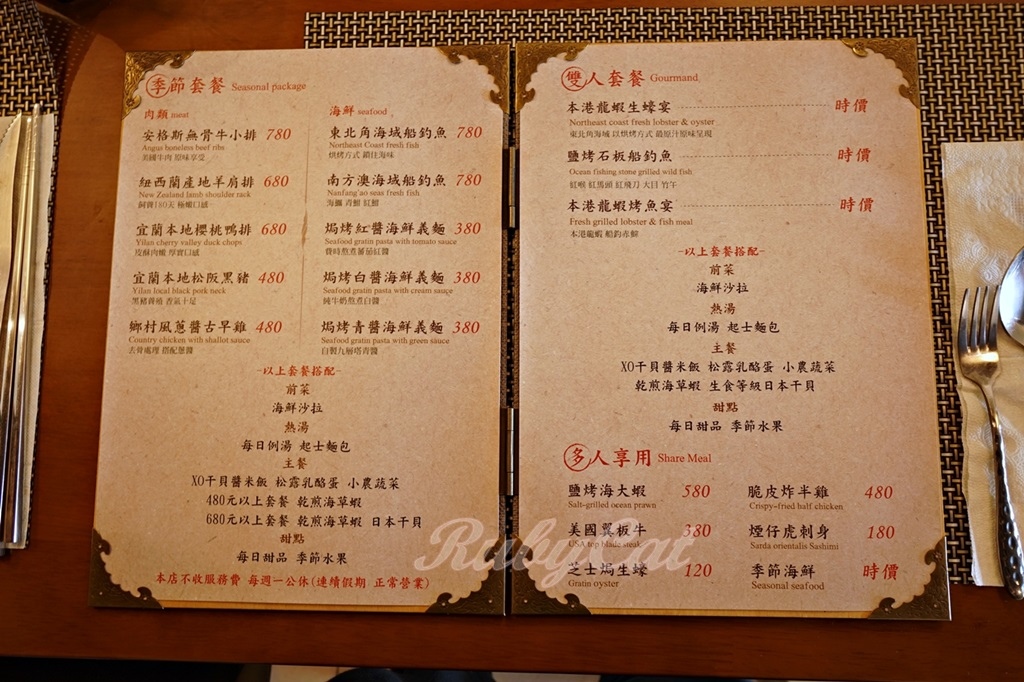 季節套餐 Seasonal package
肉類 meat
安格斯無骨牛小排 780
Angus boneless beef ribs
美國牛肉 原味享受
紐西蘭產地羊肩排 680
New Zealand lamb shoulder rack
飼養180天 極嫩口感
宜蘭本地櫻桃鴨排 680
Yilan cherry valley duck chops
皮酥肉嫩 厚實口感
宜蘭本地松阪黑豬 480
Yilan local black pork neck
黑豬養殖 香氣十足
鄉村風蔥醬古早雞 480
Country chicken with shallot sauce
去骨處理 搭配蔥醬
海鮮 seafood
東北角海域船釣魚 780
Northeast Coast fresh fish
烘烤方式 鎖住海味
南方澳海域船釣魚 780
Nanfang'ao seas fresh fish
海鱺 青鮒 紅鮒
焗烤紅醬海鮮義麵 380
Seafood gratin pasta with tomato sauce
費時熬煮蕃茄紅醬
焗烤白醬海鮮義麵 380
Seafood gratin pasta with cream sauce
純牛奶熬煮白醬
焗烤青醬海鮮義麵 380
Seafood gratin pasta with green sauce
自製九層塔青醬
-以上套餐搭配-
前菜
海鮮沙拉
熱湯
每日例湯 起士麵包
主餐
XO干貝醬米飯 松露乳酪蛋 小農蔬菜
480元以上套餐 乾煎海草蝦
680元以上套餐 乾煎海草蝦 日本干貝
甜點
每日甜品 季節水果
本店不收服務費 每週一公休(連續假期 正常營業)
雙人套餐 Gourmand
本港龍蝦生蠔宴 時價
Northeast coast fresh lobster & oyster
東北角海域 以烘烤方式 最原汁原味呈現
鹽烤石板船釣魚 時價
Ocean fishing stone grilled wild fish
紅喉 紅馬頭 紅飛刀 大目 竹午
本港龍蝦烤魚宴 時價
Fresh grilled lobster & fish meal
本港龍蝦 船釣赤鯮
-以上套餐搭配-
前菜
海鮮沙拉
熱湯
每日例湯 起士麵包
主餐
XO干貝醬米飯 松露乳酪蛋 小農蔬菜
乾煎海草蝦 生食等級日本干貝
甜點
每日甜品 季節水果
多人享用 Share Meal
鹽烤海大蝦 580
Salt-grilled ocean prawn
美國翼板牛 380
USA top blade steak
芝士焗生蠔 120
Gratin oyster
脆皮炸半雞 480
Crispy-fried half chicken
煙仔虎刺身 180
Sarda orientalis Sashimi
季節海鮮 時價
Seasonal seafood